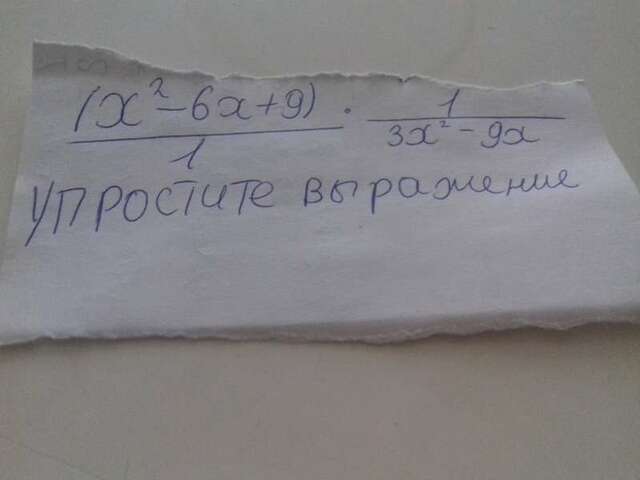 (x²-6x+9)/1 · 1/(3x²-9x)
упростите выражение